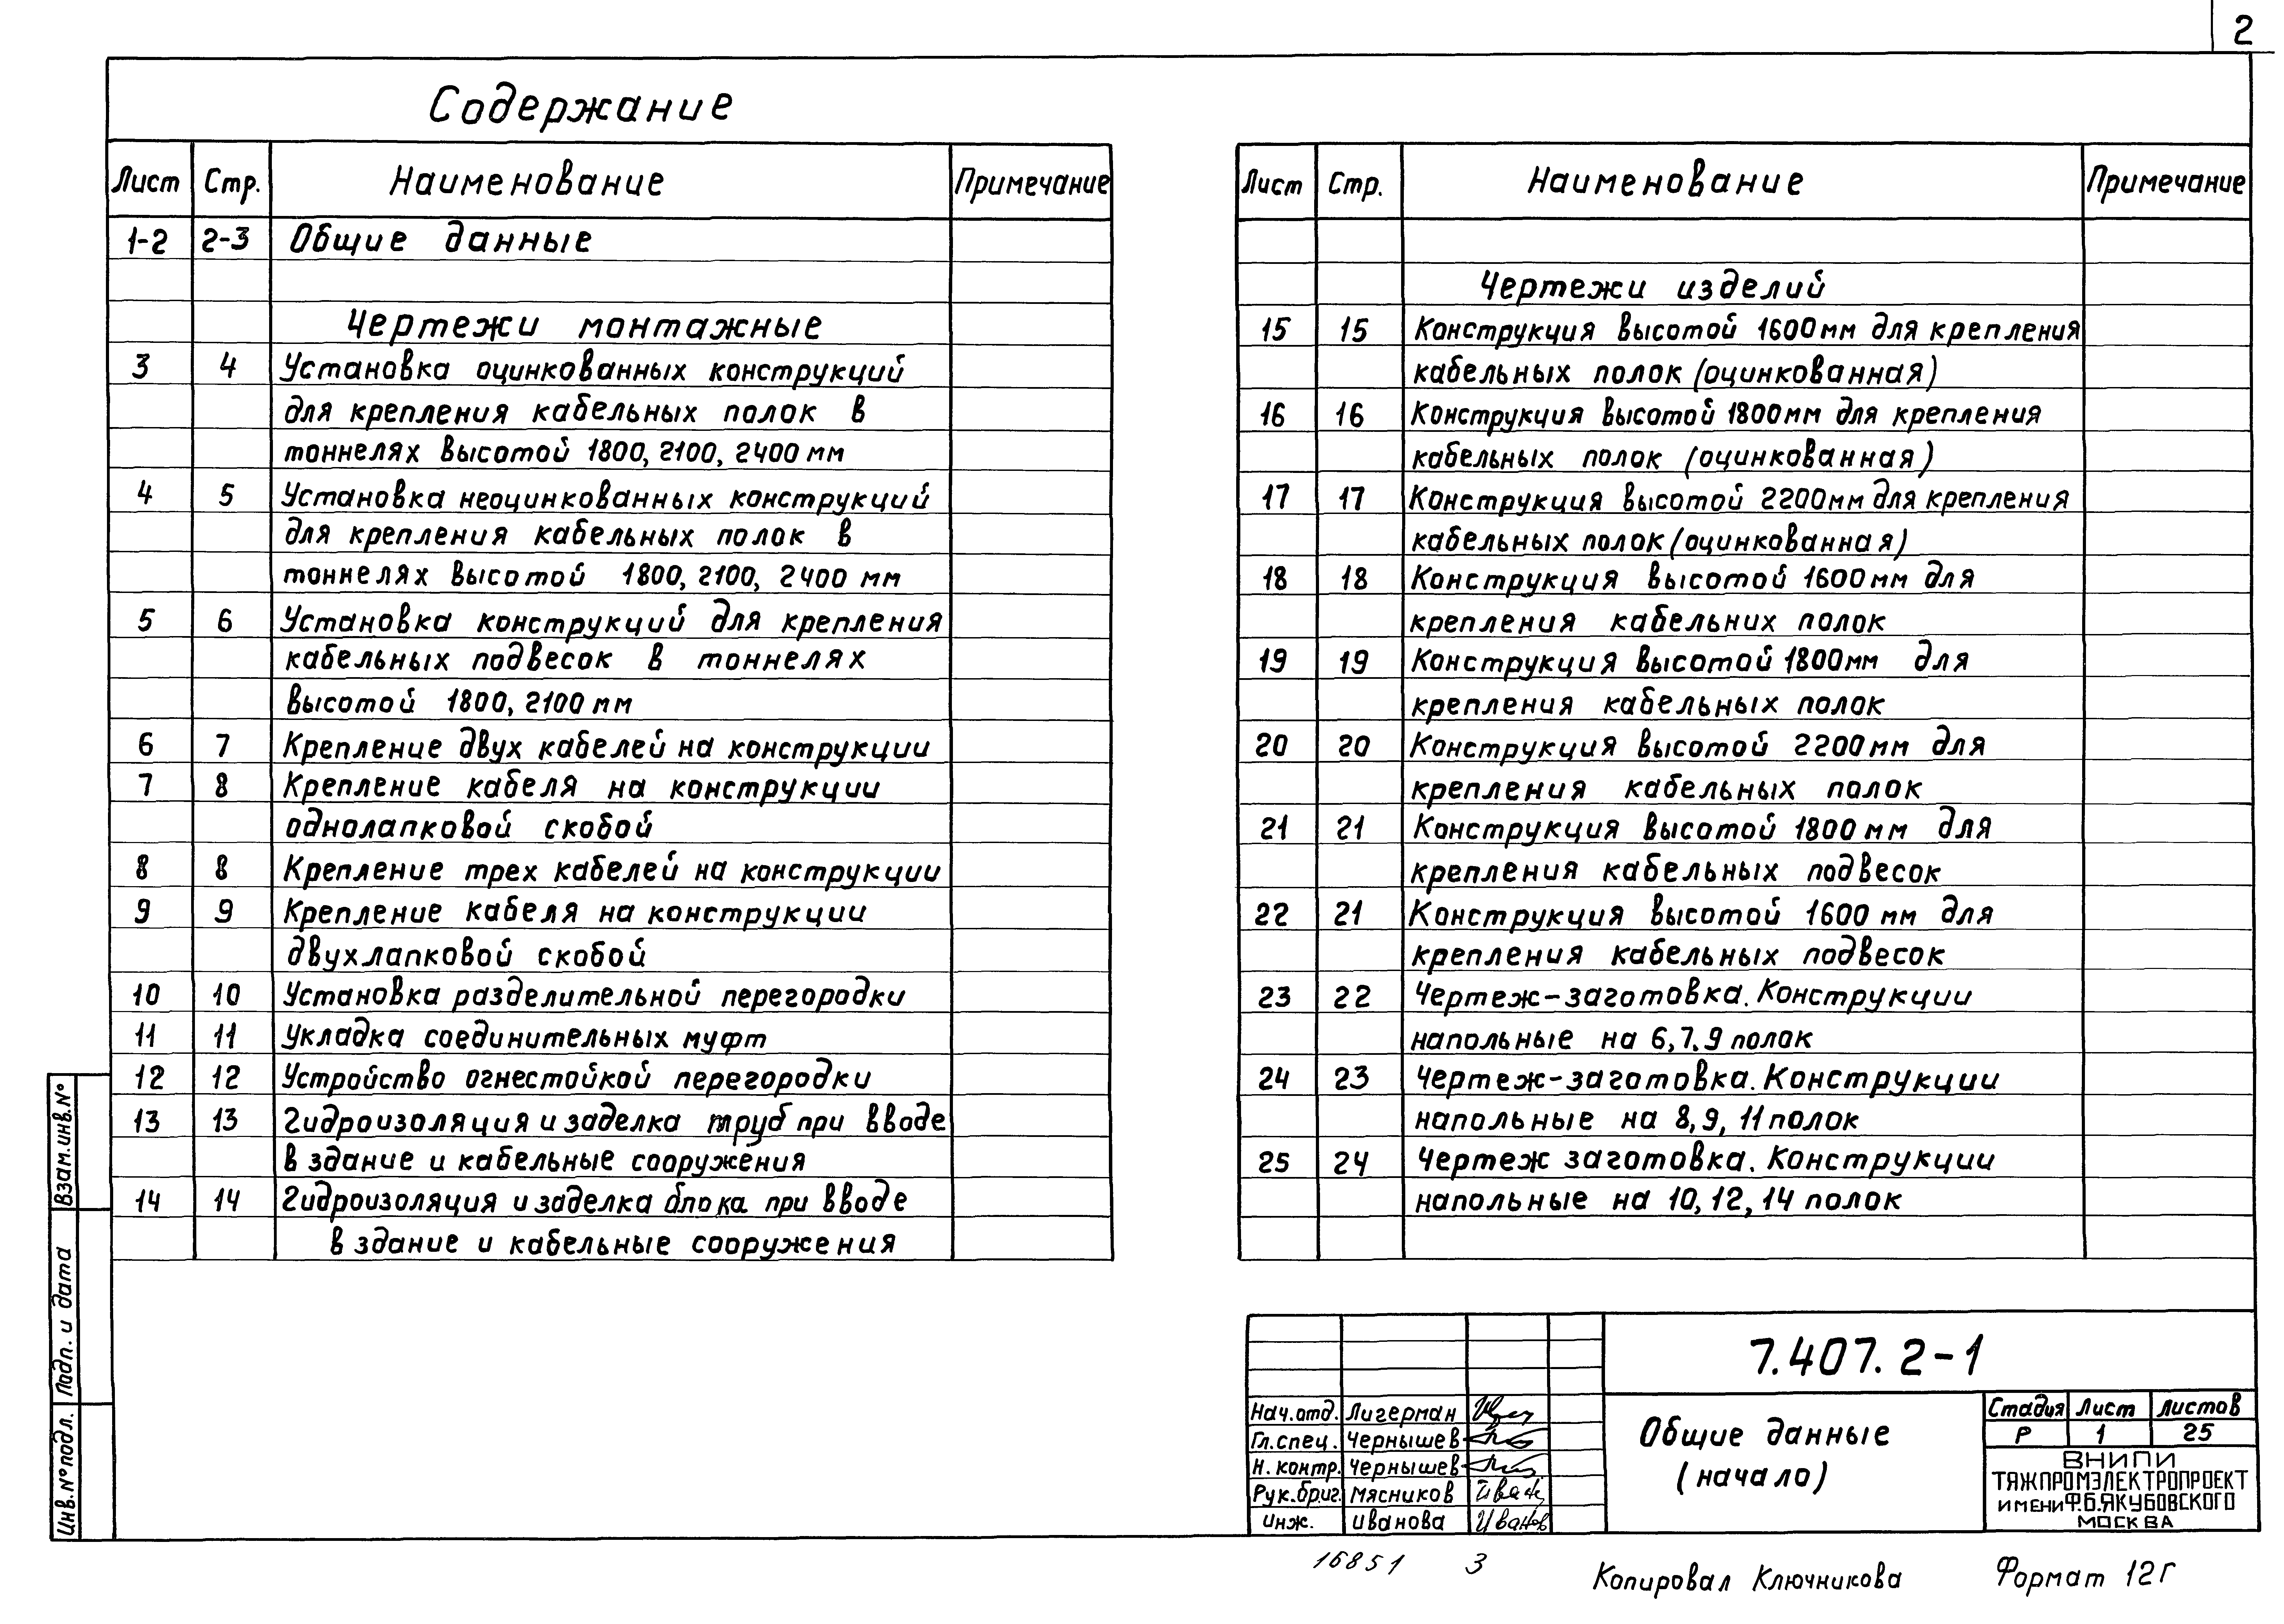 2
Содержание
Лист Стр. Наименование Примечание
1-2 2-3 Общие данные
Чертежи монтажные
3 4 Установка оцинкованных конструкций
для крепления кабельных полок в
тоннелях высотой 1800, 2100, 2400 мм
4 5 Установка неоцинкованных конструкций
для крепления кабельных полок в
тоннелях высотой 1800, 2100, 2400 мм
5 6 Установка конструкций для крепления
кабельных подвесок в тоннелях
высотой 1800, 2100 мм
6 7 Крепление двух кабелей на конструкции
7 8 Крепление кабеля на конструкции
однолапковой скобой
8 8 Крепление трех кабелей на конструкции
9 9 Крепление кабеля на конструкции
двухлапковой скобой
10 10 Установка разделительной перегородки
11 11 Укладка соединительных муфт
12 12 Устройство огнестойкой перегородки
13 13 Гидроизоляция и заделка труб при вводе
в здание и кабельные сооружения
14 14 Гидроизоляция и заделка блока при вводе
в здание и кабельные сооружения
Лист Стр. Наименование Примечание
Чертежи изделий
15 15 Конструкция высотой 1600 мм для крепления
кабельных полок (оцинкованная)
16 16 Конструкция высотой 1800 мм для крепления
кабельных полок (оцинкованная)
17 17 Конструкция высотой 2200 мм для крепления
кабельных полок (оцинкованная)
18 18 Конструкция высотой 1600 мм для
крепления кабельних полок
19 19 Конструкция высотой 1800 мм для
крепления кабельных полок
20 20 Конструкция высотой 2200 мм для
крепления кабельных полок
21 21 Конструкция высотой 1800 мм для
крепления кабельных подвесок
22 21 Конструкция высотой 1600 мм для
крепления кабельных подвесок
23 22 Чертеж-заготовка. Конструкции
напольные на 6, 7, 9 полок
24 23 Чертеж-заготовка. Конструкции
напольные на 8, 9, 11 полок
25 24 Чертеж заготовка. Конструкции
напольные на 10, 12, 14 полок
Взам. инв. №
Подп. и дата
Инв. № подл.
7.407.2-1
Нач. отд. Лигерман
Гл. спец. Чернышев
Н. контр. Чернышев
Рук. бриг. Мясников
Инж. Иванова Иванов
Общие данные
(начало)
Стадия Лист Листов
Р 1 25
ВНИПИ
ТЯЖПРОМЭЛЕКТРОПРОЕКТ
ИМЕНИ Ф.Б.ЯКУБОВСКОГО
МОСКВА
16851 3
Копировал Ключникова Формат 12Г